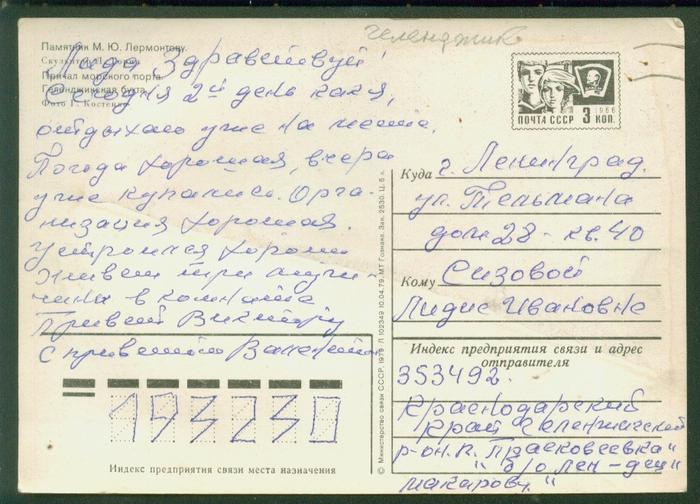 Геленджик
Памятник М. Ю. Лермонтову.
Причал морского порта.
Геленджикская бухта.
Фото Г. Костенко
Лида Здравствуй!
Сегодня 2й день как я,
отдыхаю уже на месте.
Погода хорошая, вчера
уже купались. Орга-
низация хорошая.
Устроился хорошо
живем три мужч-
чина в комнате
Привет Виктору
с приветом Валентин
ПОЧТА СССР 3 КОП.
1966
Куда г. Ленинград.
ул. Тельмана
дом 28 - кв. 40
Кому Сизовой
Лидие Ивановне
Индекс предприятия связи и адрес
отправителя
353492.
Краснодарский
край Геленджикский
р-он. п. Прасковеевка"
" б/о лен-
193230
Индекс предприятия связи места назначения
© Министерство связи СССР, 1979 Л 102349 10.04.79. МТ Гознака. Зак. 2530. Ц. 5 к.